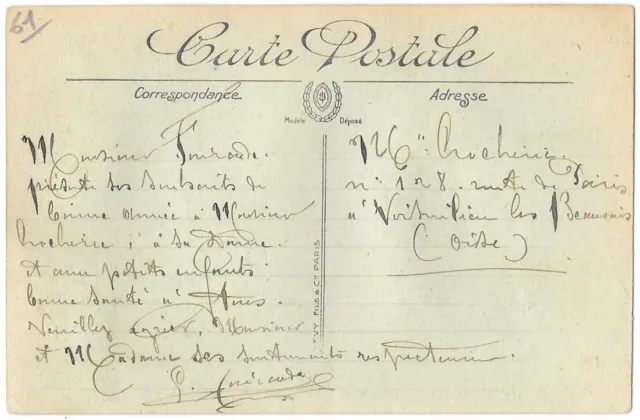 61
Carte Postale
Correspondance
Adresse
Modèle Déposé
Monsieur
présente ses souhaits de
bonne année à Monsieur
Rocherie, à sa Dame
et aux petits enfants
bonne santé à tous
Veuillez agréer, Monsieur
et Madame ses sentiments respectueux.
Mr Rocherie
n° 128. route de Paris
à Voisinlieu les Beauvais
(Oise)
LEVY FILS & Cie PARIS